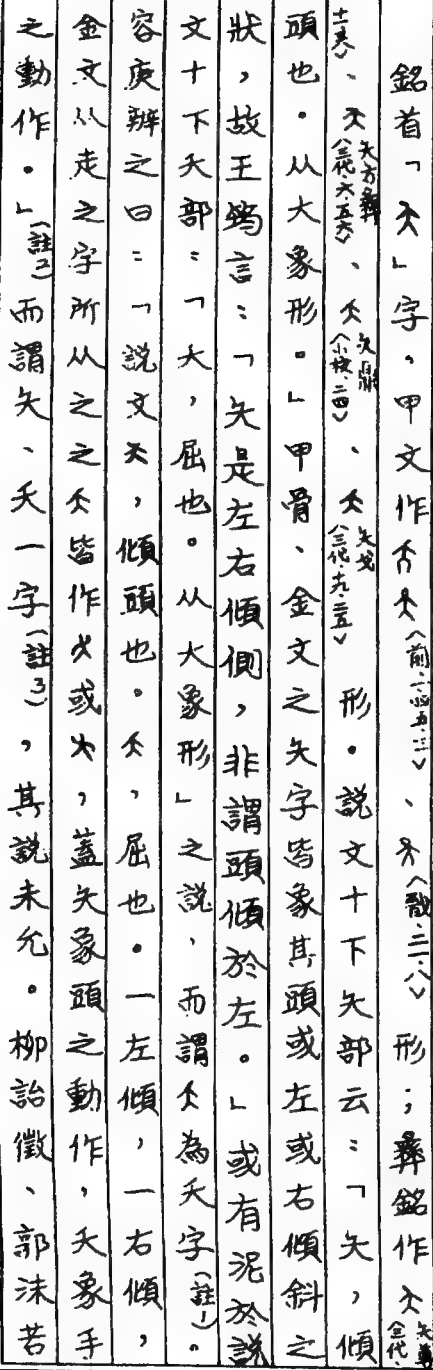 銘首「夨」字，甲文作夨夨〈前．一．四五．三〉、夨〈戩．三一．八〉形；彝銘作夨夨尊〈三代
十一．夾〉、夨夨方彝〈三代．六．五六〉、夨夨鼎〈小校．二．四〉、夨夨戈〈三代．十九．二五〉形。說文十下夨部云：「夨，傾
頭也。从大象形。」甲骨、金文之夨字皆象其頭或左或右傾斜之
狀，故王筠言：「夨是左右傾側，非謂頭傾於左。」或有泥於說
文十下夭部：「夭，屈也。从大象形」之說，而謂夨為夭字(註1)。
容庚辨之曰：「說文夨，傾頭也。夭，屈也。一左傾，一右傾，
金文从走之字所从之夭皆作夭或夭，蓋夨象頭之動作，夭象手
之動作。」(註2)而謂夨、夭一字(註3)，其說未允。柳詒徵、郭沫若